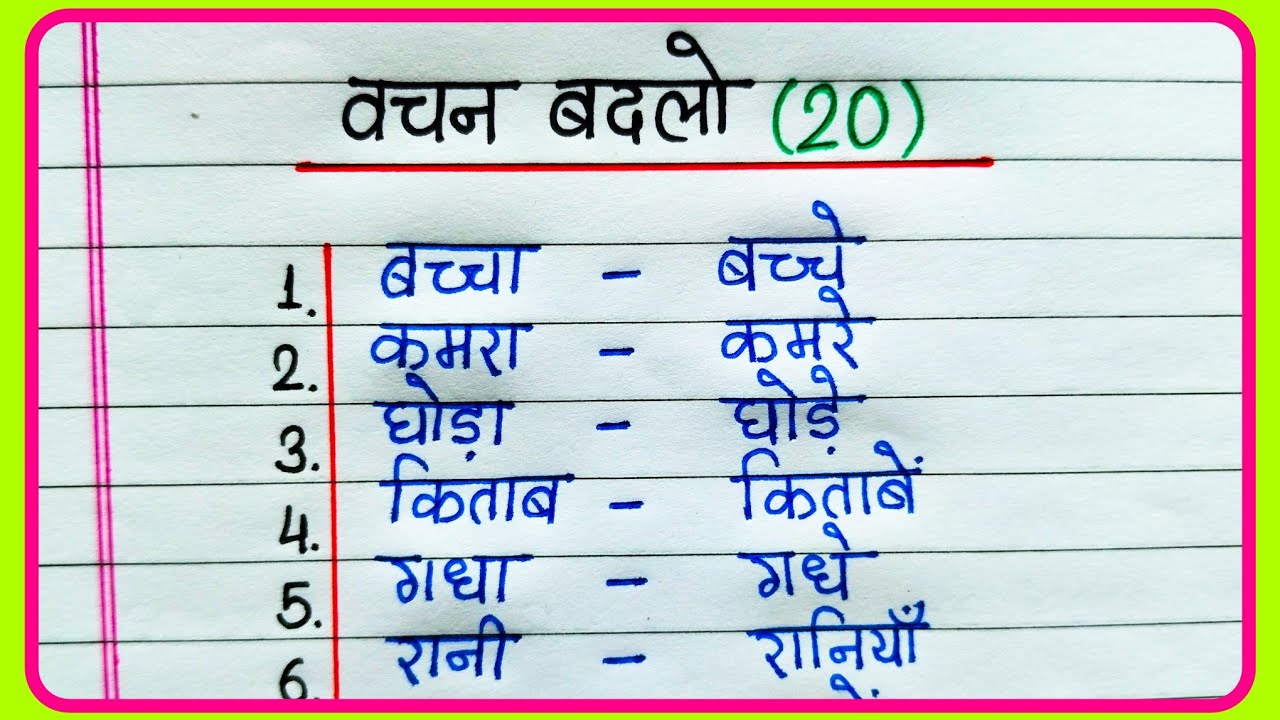 वचन बदलो (20)
1. बच्चा - बच्चे
2. कमरा - कमरे
3. घोड़ा - घोड़े
4. किताब - किताबें
5. गधा - गधे
6. रानी - रानियाँ